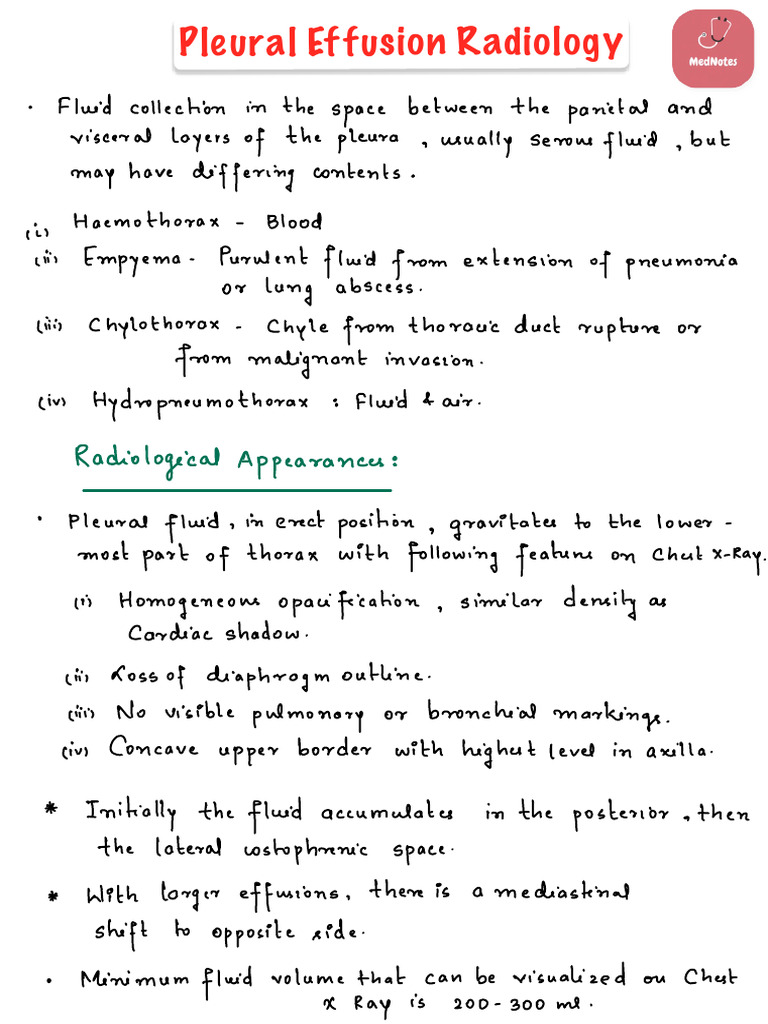 Pleural Effusion Radiology
MedNotes
• Fluid collection in the space between the parietal and
visceral layers of the pleura, usually serous fluid, but
may have differing contents.
(i) Haemothorax - Blood
(ii) Empyema - Purulent fluid from extension of pneumonia
or lung abscess.
(iii) Chylothorax - Chyle from thoracic duct rupture or
from malignant invasion.
(iv) Hydropneumothorax : Fluid & air.
Radiological Appearances:
• Pleural fluid, in erect position, gravitates to the lower-
most part of thorax with following features on Chest X-Ray.
(i) Homogeneous opacification, similar density as
Cardiac shadow.
(ii) Loss of diaphragm outline.
(iii) No visible pulmonary or bronchial markings.
(iv) Concave upper border with highest level in axilla.
* Initially the fluid accumulates in the posterior, then
the lateral costophrenic space.
* With larger effusions, there is a mediastinal
shift to opposite side.
• Minimum fluid volume that can be visualized on Chest
X Ray is 200-300 ml.